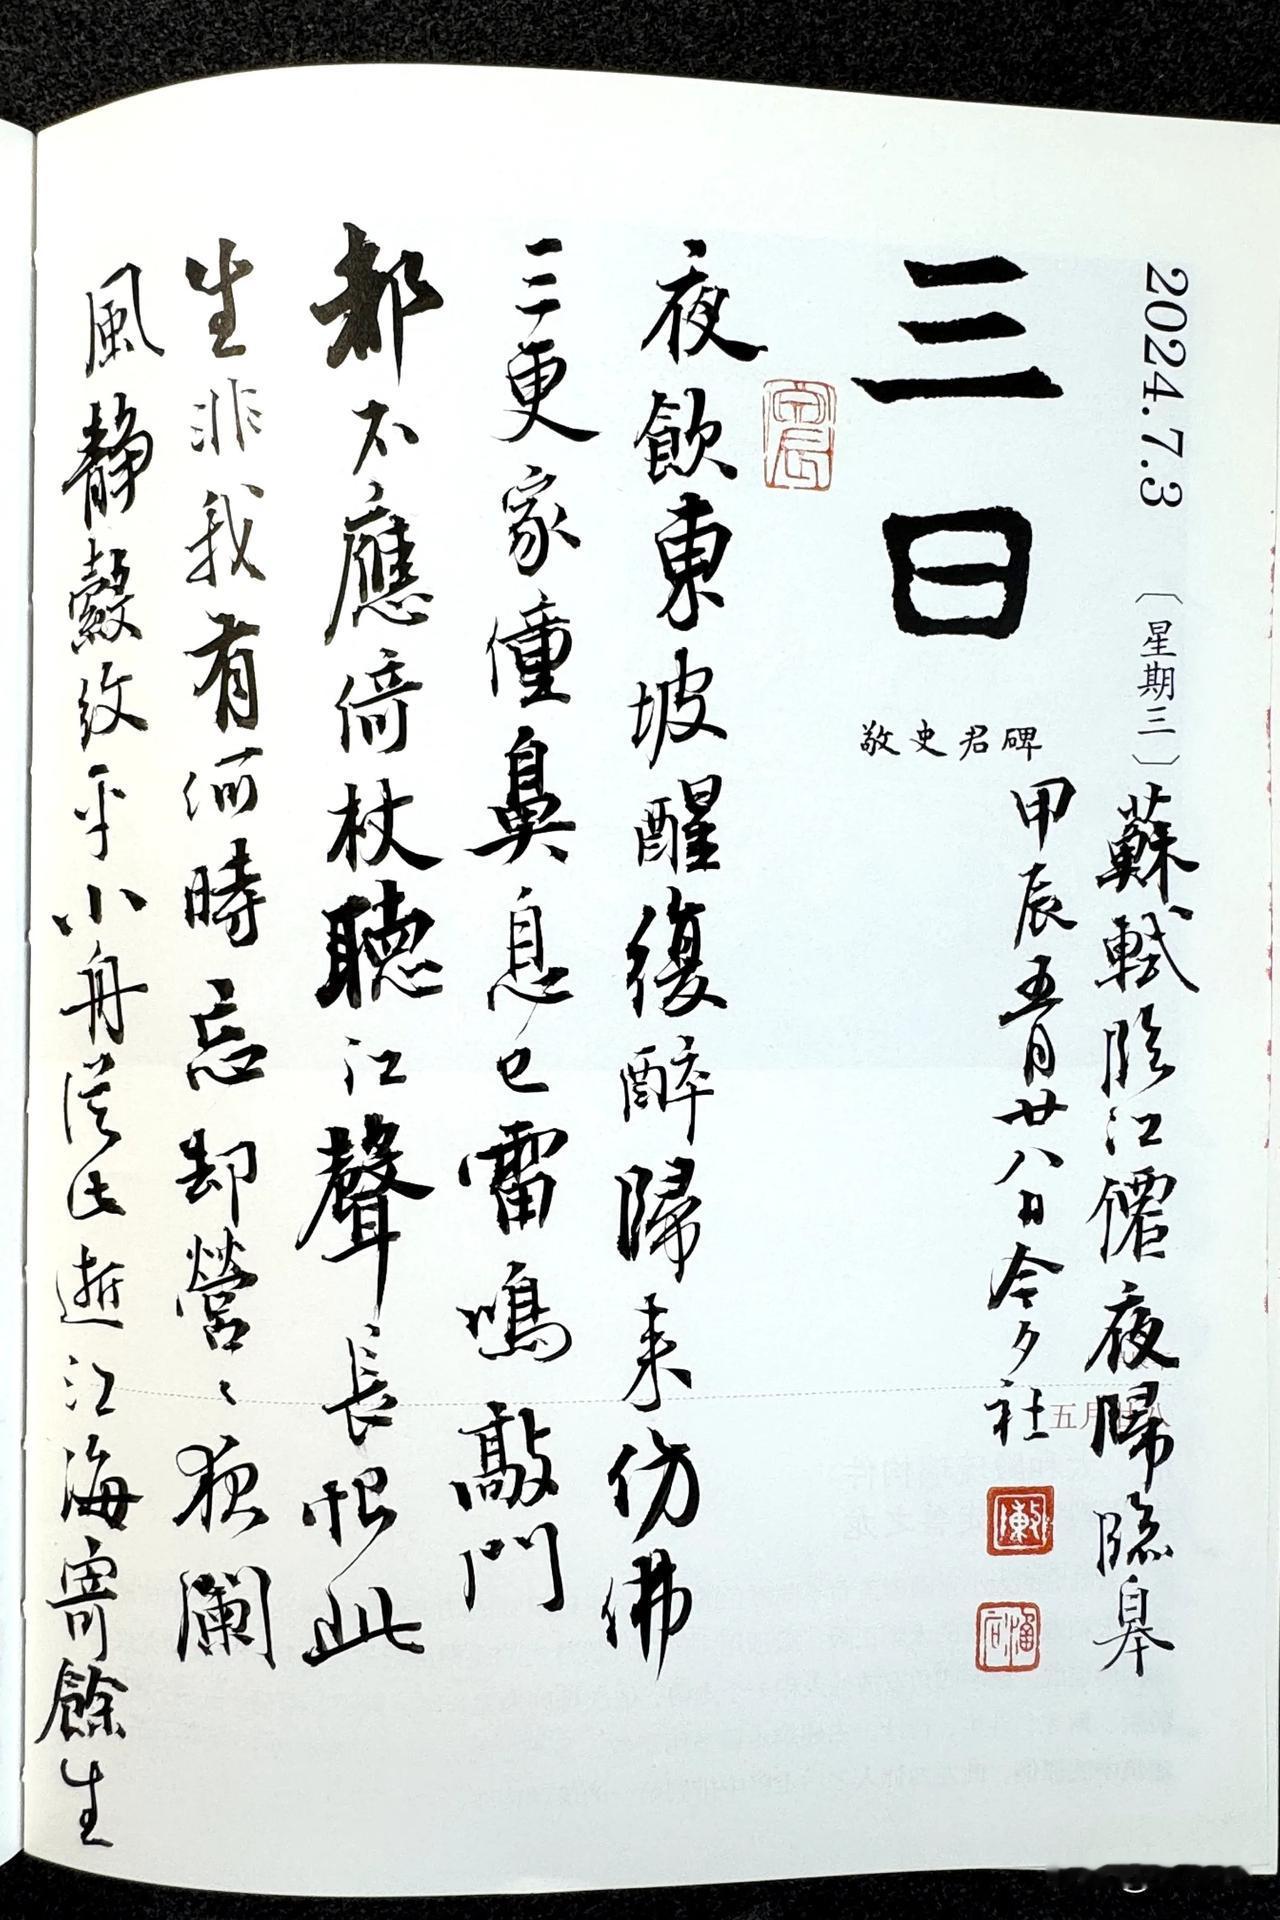 2024.7.3〔星期三〕
蘇軾臨江僊夜歸臨皋
甲辰五月廿八日
五月廿八
三日
敬史君碑
夜飲東坡醒復醉歸来仿佛
三更家僮鼻息已雷鳴敲門
都不應倚杖聽江聲長恨此
生非我有何時忘却營々夜闌
風静縠紋平小舟從此逝江海寄餘生